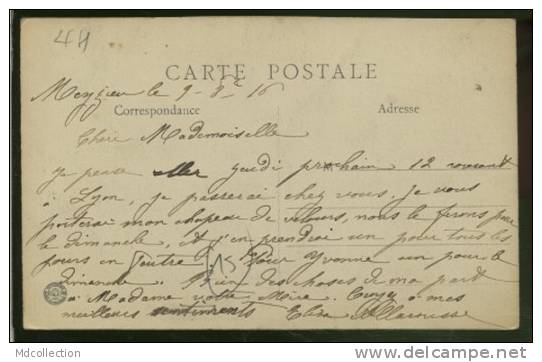 44
CARTE POSTALE
Meyzieu le 9-8bre 16
Correspondance
Adresse
Chère Mademoiselle
Je pense aller jeudi prochain 12 courant
à Lyon, je passerai chez vous. Je vous
porterai mon chapeau de velours, nous le ferons pour
le dimanche, et j'en prendrai un pour tous les
jours en feutre Pour Yvonne un pour le
dimanche. Bien des choses de ma part
à Madame votre Mère. Croyez à mes
meilleurs sentiments Elisa
MDcollection
http://www.delcampe.net